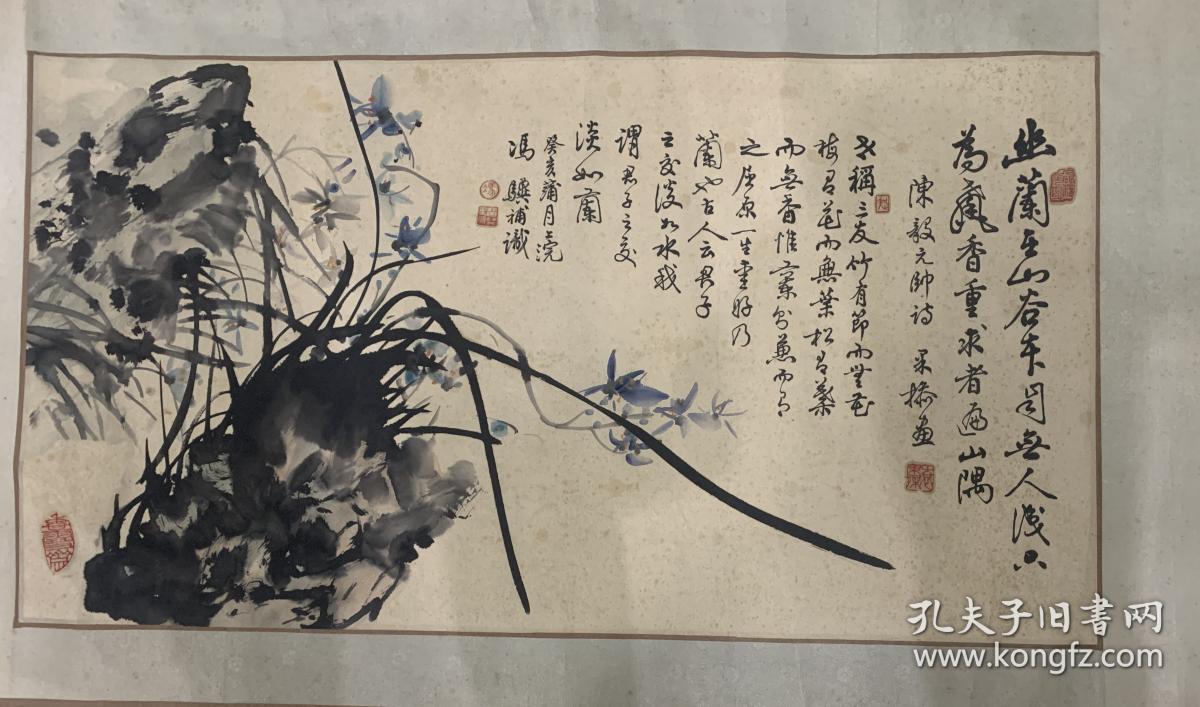 幽蘭在山谷本自無人識只
為馨香重求者遍山隅
陳毅元帥詩
世稱三友竹有節而無花
梅有花而無葉松有葉
而無香惟蘭兼而有
之屈原一生好乃
蘭也古人云君子
之交淡如水我
謂君子之交
淡如蘭
癸亥蒲月上浣
馮 補識
孔夫子旧书网
www.kongfz.com